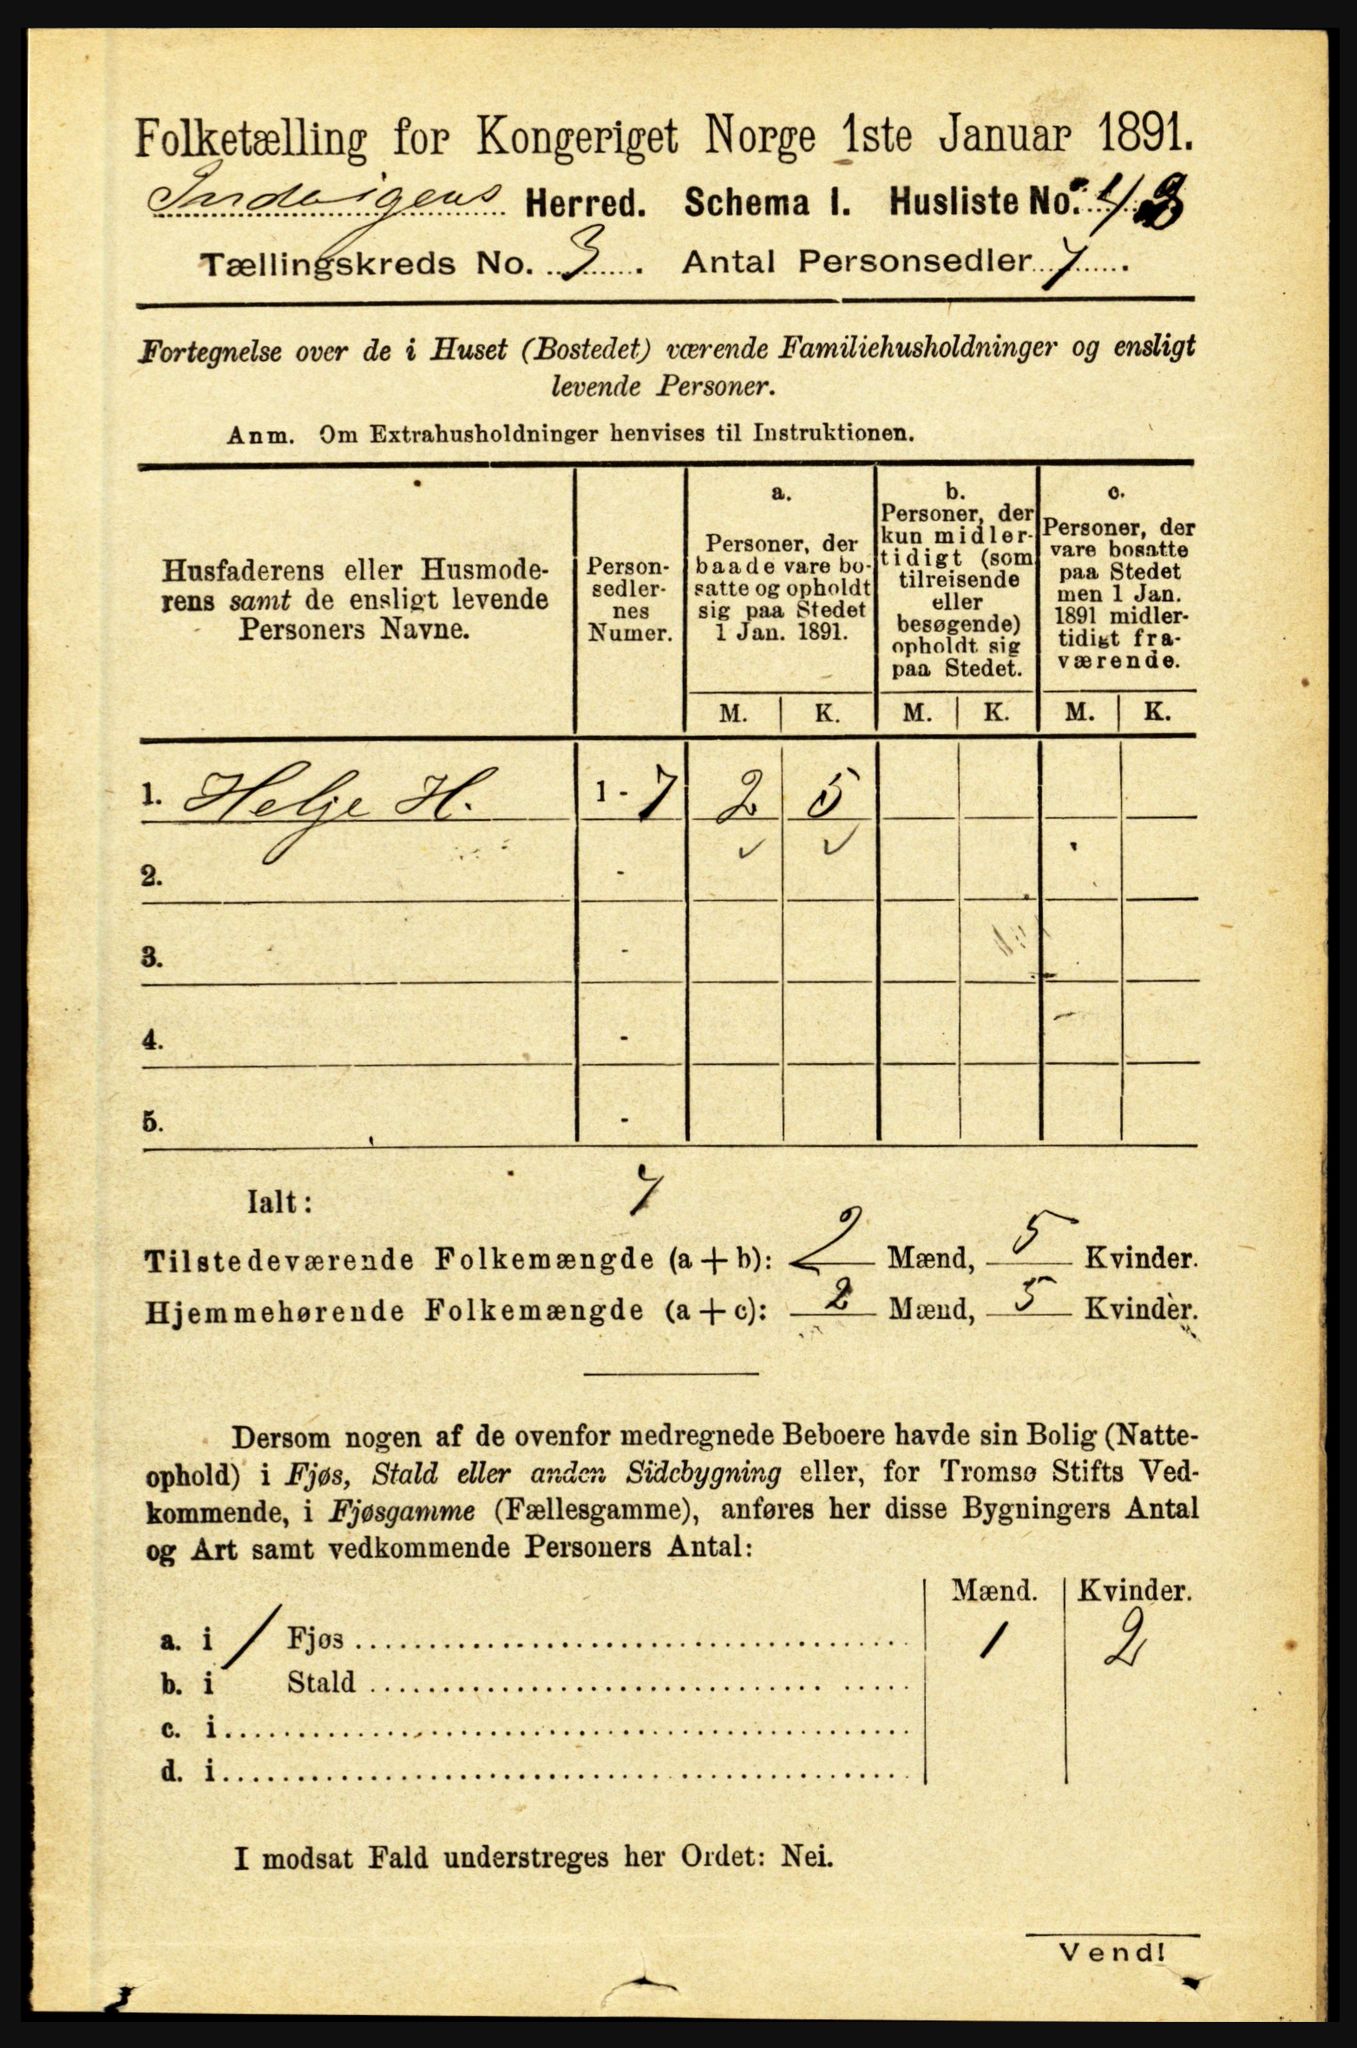 Folketælling for Kongeriget Norge 1ste Januar 1891.
Indvigens Herred. Schema I. Husliste No.
Tællingskreds No. 3. Antal Personsedler 7.
Fortegnelse over de i Huset (Bostedet) værende Familiehusholdninger og ensligt
levende Personer.
Anm. Om Extrahusholdninger henvises til Instruktionen.
Husfaderens eller Husmode-
rens samt de ensligt levende
Personers Navne.
Person-
sedler-
nes
Numer.
a.
Personer, der
baade vare bo-
satte og opholdt
sig paa Stedet
1 Jan. 1891.
b.
Personer, der
kun midler-
tidigt (som
tilreisende
eller
besøgende)
opholdt sig
paa Stedet.
c.
Personer, der
vare bosatte
paa Stedet
men 1 Jan.
1891 midler-
tidigt fra-
værende.
M. K. M. K. M. K.
1. Helje H. 1 - 7 2 5
✓ ✓
2. -
3. -
4. -
5. -
Ialt: 7
Tilstedeværende Folkemængde (a + b): 2 Mænd, 5 Kvinder.
Hjemmehørende Folkemængde (a + c): 2 Mænd, 5 Kvinder.
Dersom nogen af de ovenfor medregnede Beboere havde sin Bolig (Natte-
ophold) i Fjøs, Stald eller anden Sidebygning eller, for Tromsø Stifts Ved-
kommende, i Fjøsgamme (Fællesgamme), anføres her disse Bygningers Antal
og Art samt vedkommende Personers Antal:
Mænd. Kvinder.
a. i 1 Fjøs 1 2
b. i Stald
c. i
d. i
I modsat Fald understreges her Ordet: Nei.
Vend!